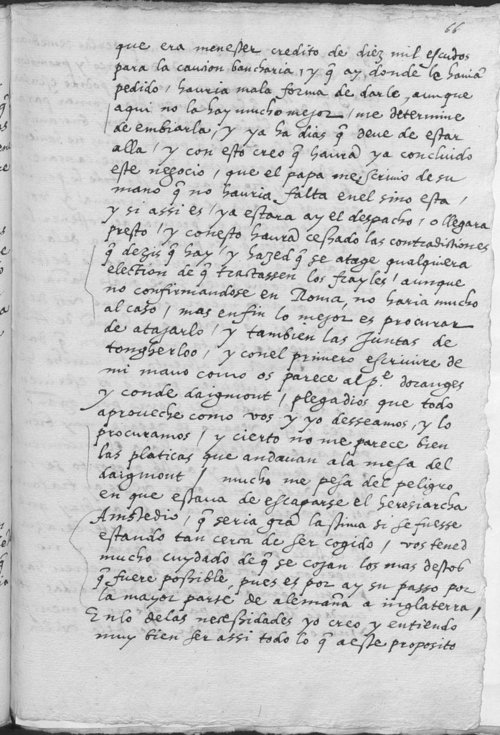 66
que era menester credito de diez mil escudos
para la caucion bancharia, y q̃ ay donde le havia
pedido / hauria mala forma de darle, aunque
aqui no la hay mucho mejor / me determine
de embiarla / y ya ha dias q̃ deue de estar
alla / y con esto creo q̃ haura ya concluido
este negocio / que el papa me scriuio de su
mano q̃ no hauria falta en el sino esta /
y si assi es / ya estara ay el despacho / o llegara
presto / y con esto haura cessado las contradictiones
q̃ dezis q̃ hay / y hazed q̃ se ataje qualquiera
election de q̃ tractassen los frayles / aunque
no confirmandose en Roma, no haria mucho
al caso / mas en fin lo mejor es procurar
de atajarlo / y tambien las Juntas de
tongherloo / y con el primero escriuire de
mi mano como os parece al p.e doranges
y conde daigmont / plega a dios que todo
aproueche como vos y yo desseamos, y lo
procuramos / y cierto no me parece bien
las platicas que andauan a la mesa del
daigmont / mucho me pesa del peligro
en que estaua de escaparse el heresiarcha
Amstedio / q̃ seria grã lastima si se fuesse
estando tan cerca de ser cogido / vos tened
mucho cuydado de q̃ se cojan los mas destos
q̃ fuere possible, pues es por ay su passo por
la mayor parte de alemaña a inglaterra /
En lo de las necessidades yo creo y entiendo
muy bien ser assi todo lo q̃ a este proposito